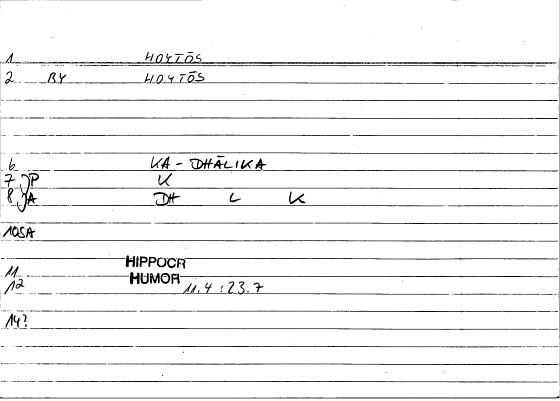 1 HOYTŌS
2 BY HOYTŌS
6 KA-DHĀLIKA
7 P K
8 A DH L K
10SA
11 HIPPOCR
12 HUMOR 11.4:23.7
14?